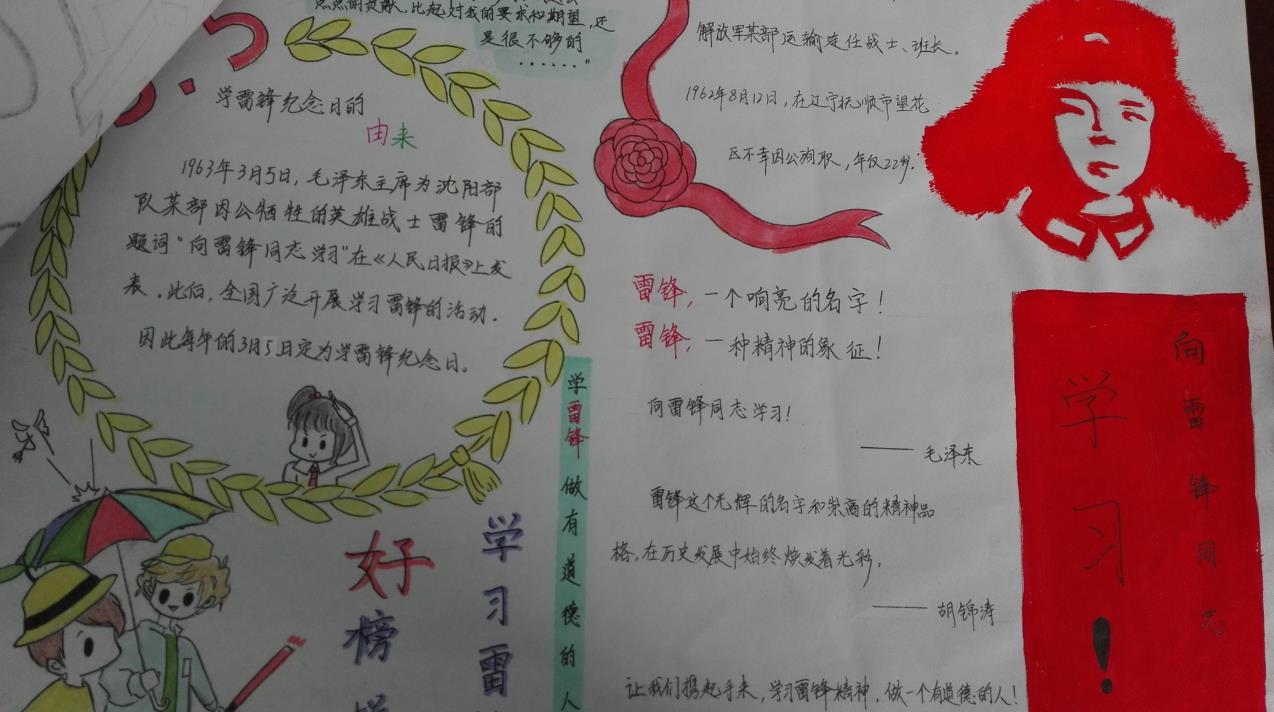 点点的贡献,比起对我的要求和期望,还
是很不够的
……"
学雷锋纪念日的
由来
1963年3月5日,毛泽东主席为沈阳部
队某部因公牺牲的英雄战士雷锋的
题词"向雷锋同志学习"在《人民日报》上发
表。此后,全国广泛开展学习雷锋的活动。
因此每年的3月5日定为学雷锋纪念日。
好
榜
学习雷
学雷锋做有道德的人
解放军某部运输连任战士、班长。
1962年8月12日,在辽宁抚顺市望花
区不幸因公殉职,年仅22岁.
雷锋,一个响亮的名字!
雷锋,一种精神的象征!
向雷锋同志学习!
—— 毛泽东
雷锋这个光辉的名字和崇高的精神品
格,在历史发展中始终焕发着光彩。
—— 胡锦涛
让我们携起手来,学习雷锋精神,做一个有道德的人!
向雷锋同志
学习!